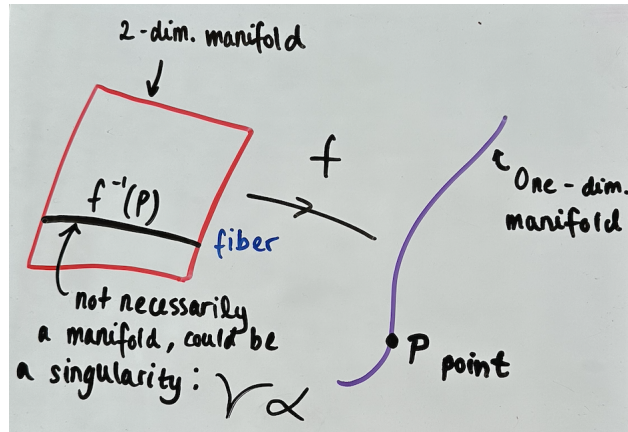 2-dim. manifold
f
f⁻¹(P)
One-dim.
manifold
fiber
not necessarily
a manifold, could be
a singularity:
P point